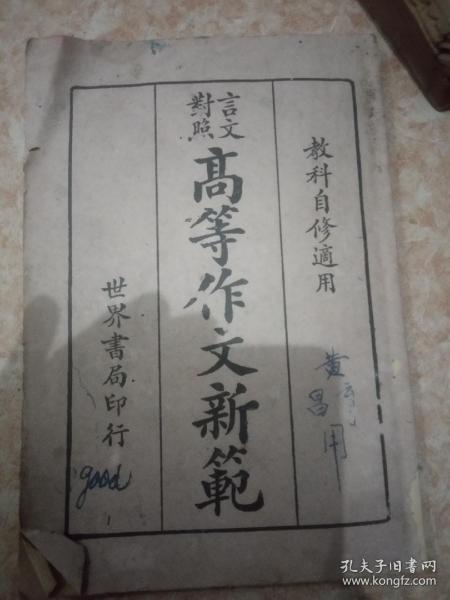 教科自修適用
言文
對照
高等作文新範
世界書局印行
黄
昌用
good
孔夫子旧书网
www.kongfz.com